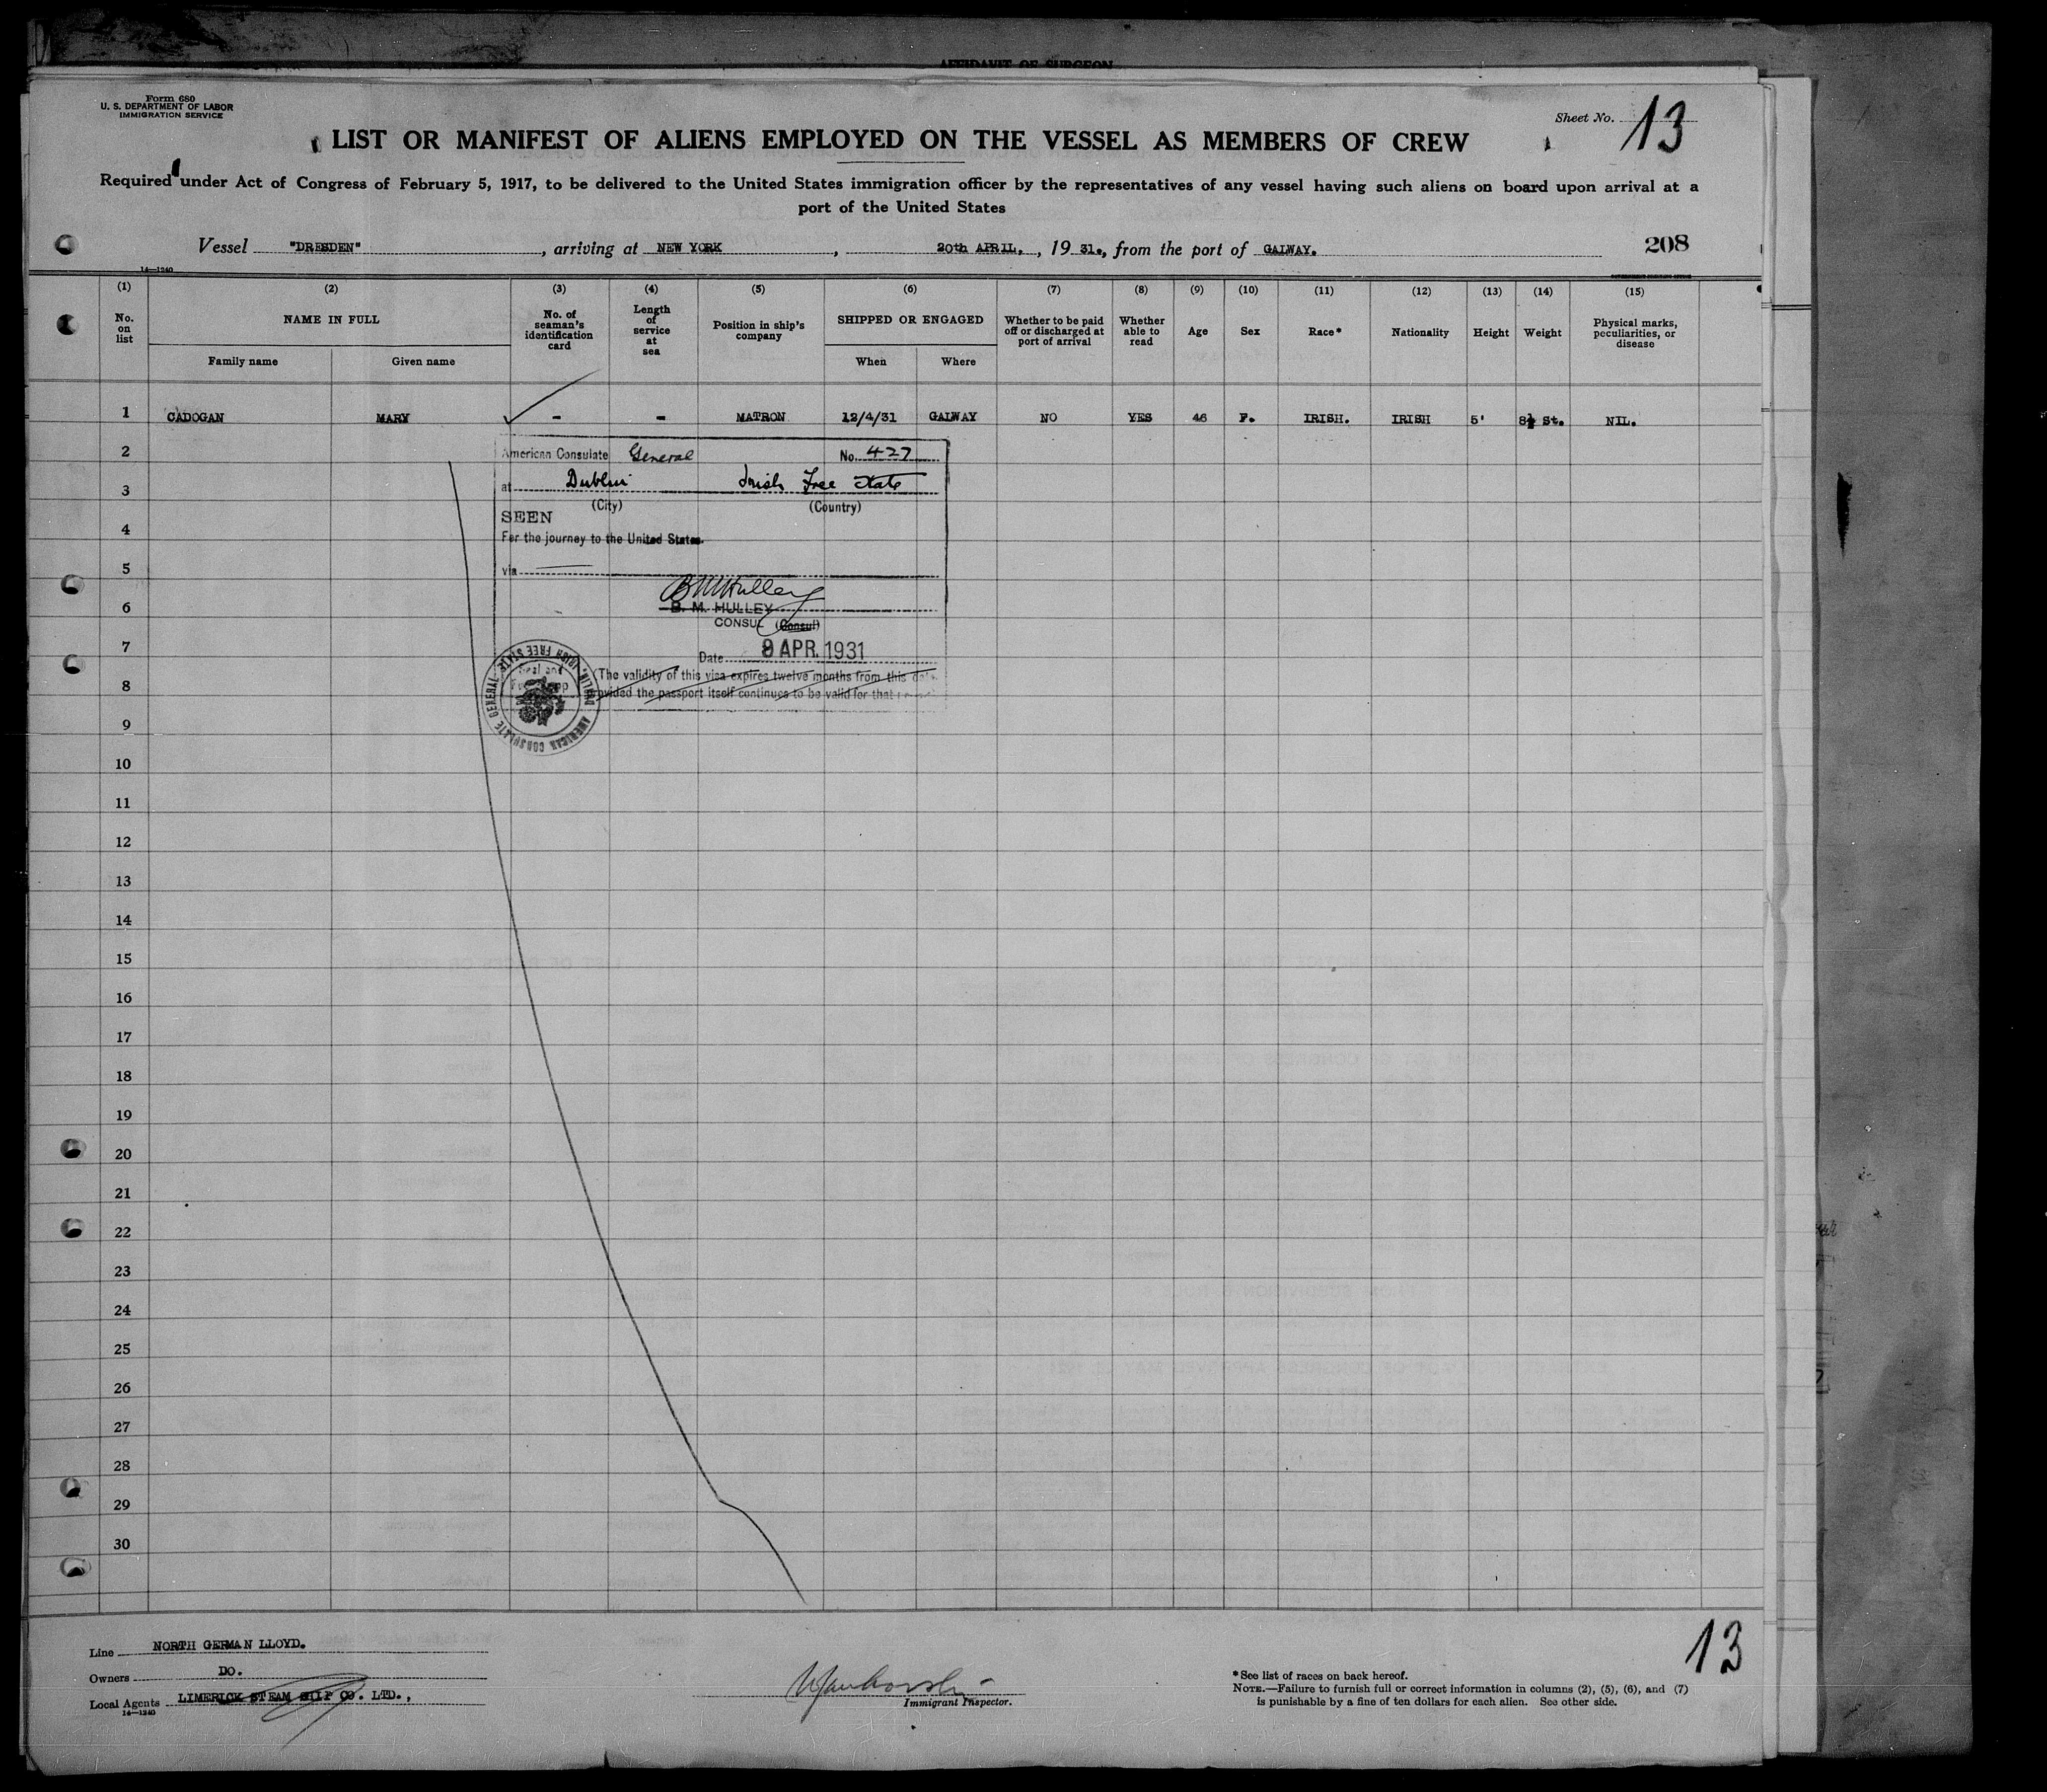 AFFIDAVIT OF SURGEON
Form 680
U. S. DEPARTMENT OF LABOR
IMMIGRATION SERVICE
Sheet No. 13
LIST OR MANIFEST OF ALIENS EMPLOYED ON THE VESSEL AS MEMBERS OF CREW
Required under Act of Congress of February 5, 1917, to be delivered to the United States immigration officer by the representatives of any vessel having such aliens on board upon arrival at a
port of the United States
Vessel "DRESDEN", arriving at NEW YORK, 20th APRIL., 19 31., from the port of GALWAY.
208
14—1240
(1) (2) (3) (4) (5) (6) (7) (8) (9) (10) (11) (12) (13) (14) (15)
No. on list
NAME IN FULL
Family name Given name
No. of seaman's identification card
Length of service at sea
Position in ship's company
SHIPPED OR ENGAGED
When Where
Whether to be paid off or discharged at port of arrival
Whether able to read
Age
Sex
Race*
Nationality
Height
Weight
Physical marks, peculiarities, or disease
1 CADOGAN MARY - - MATRON 12/4/31 GALWAY NO YES 46 F. IRISH. IRISH 5' 8½ St. NIL.
2
3
4
5
6
7
8
9
10
11
12
13
14
15
16
17
18
19
20
21
22
23
24
25
26
27
28
29
30
American Consulate General No. 427
at Dublin Irish Free State
(City) (Country)
SEEN
For the journey to the United States.
via
B M Hulley
B. M. HULLEY
CONSUL (Consul)
Date 8 APR. 1931
(The validity of this visa expires twelve months from this date
provided the passport itself continues to be valid for that
AMERICAN CONSULATE GENERAL DUBLIN, IRISH FREE STATE
Seal and
Line NORTH GERMAN LLOYD.
Owners DO.
Local Agents LIMERICK STEAM SHIP CO. LTD.,
14—1240
Immigrant Inspector.
*See list of races on back hereof.
NOTE.—Failure to furnish full or correct information in columns (2), (5), (6), and (7)
is punishable by a fine of ten dollars for each alien. See other side.
13